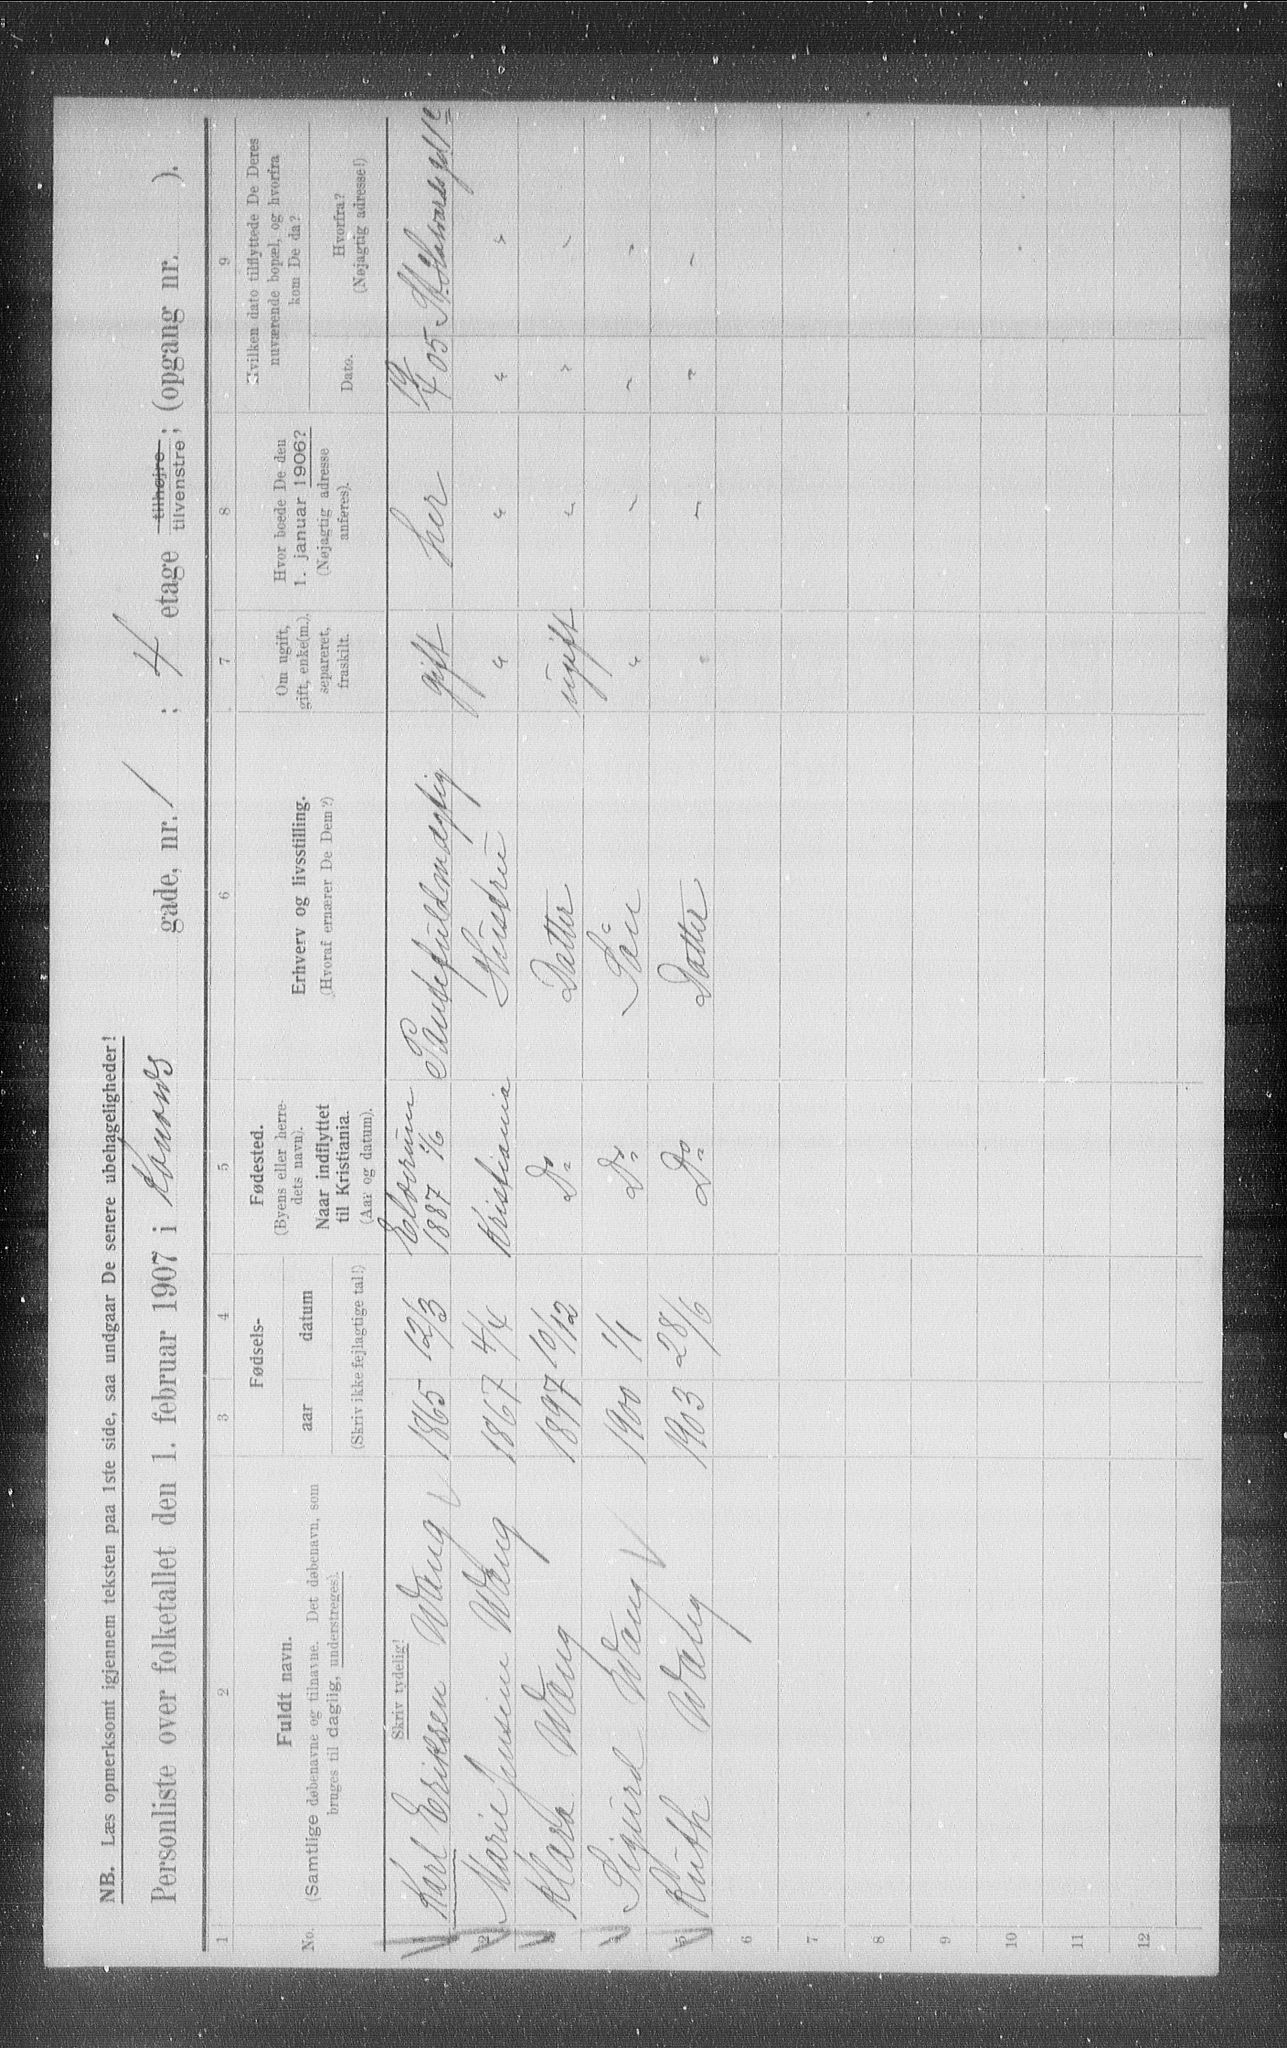 NB. Læs opmerksomt igjennem teksten paa 1ste side, saa undgaar De senere ubehageligheder!
Personliste over folketallet den 1. februar 1907 i gade, nr. 1 ; 4 etage tilhøjre, tilvenstre; (opgang nr. ).
1 2 3 4 5 6 7 8 9
No.
Fuldt navn.
(Samtlige døbenavne og tilnavne. Det døbenavn, som
bruges til daglig, understreges).
Fødsels-
aar datum
(Skriv ikke fejlagtige tal!)
Fødested.
(Byens eller herre-
dets navn).
Naar indflyttet
til Kristiania.
(Aar og datum).
Erhverv og livsstilling.
(Hvoraf ernærer De Dem?)
Om ugift,
gift, enke(m.),
separeret,
fraskilt.
Hvor boede De den
1. januar 1906?
(Nøjagtig adresse
anføres).
Hvilken dato tilflyttede De Deres
nuværende bopæl, og hvorfra
kom De da?
Dato.
Hvorfra?
(Nøjagtig adresse!)
Skriv tydelig!
1 Karl Eriksen Wang 1865 12/3 Elverum 1887 1/6 gift her 05
2 Marie Jensine Wang 1867 4/4 Kristiania Hustru " " " "
3 Klara Wang 1897 10/12 Do Datter ugift " " "
4 Sigurd Wang 1900 1/1 Do Sön " " " "
5 Ruth Wang 1903 28/6 Do Datter " " " "
6
7
8
9
10
11
12